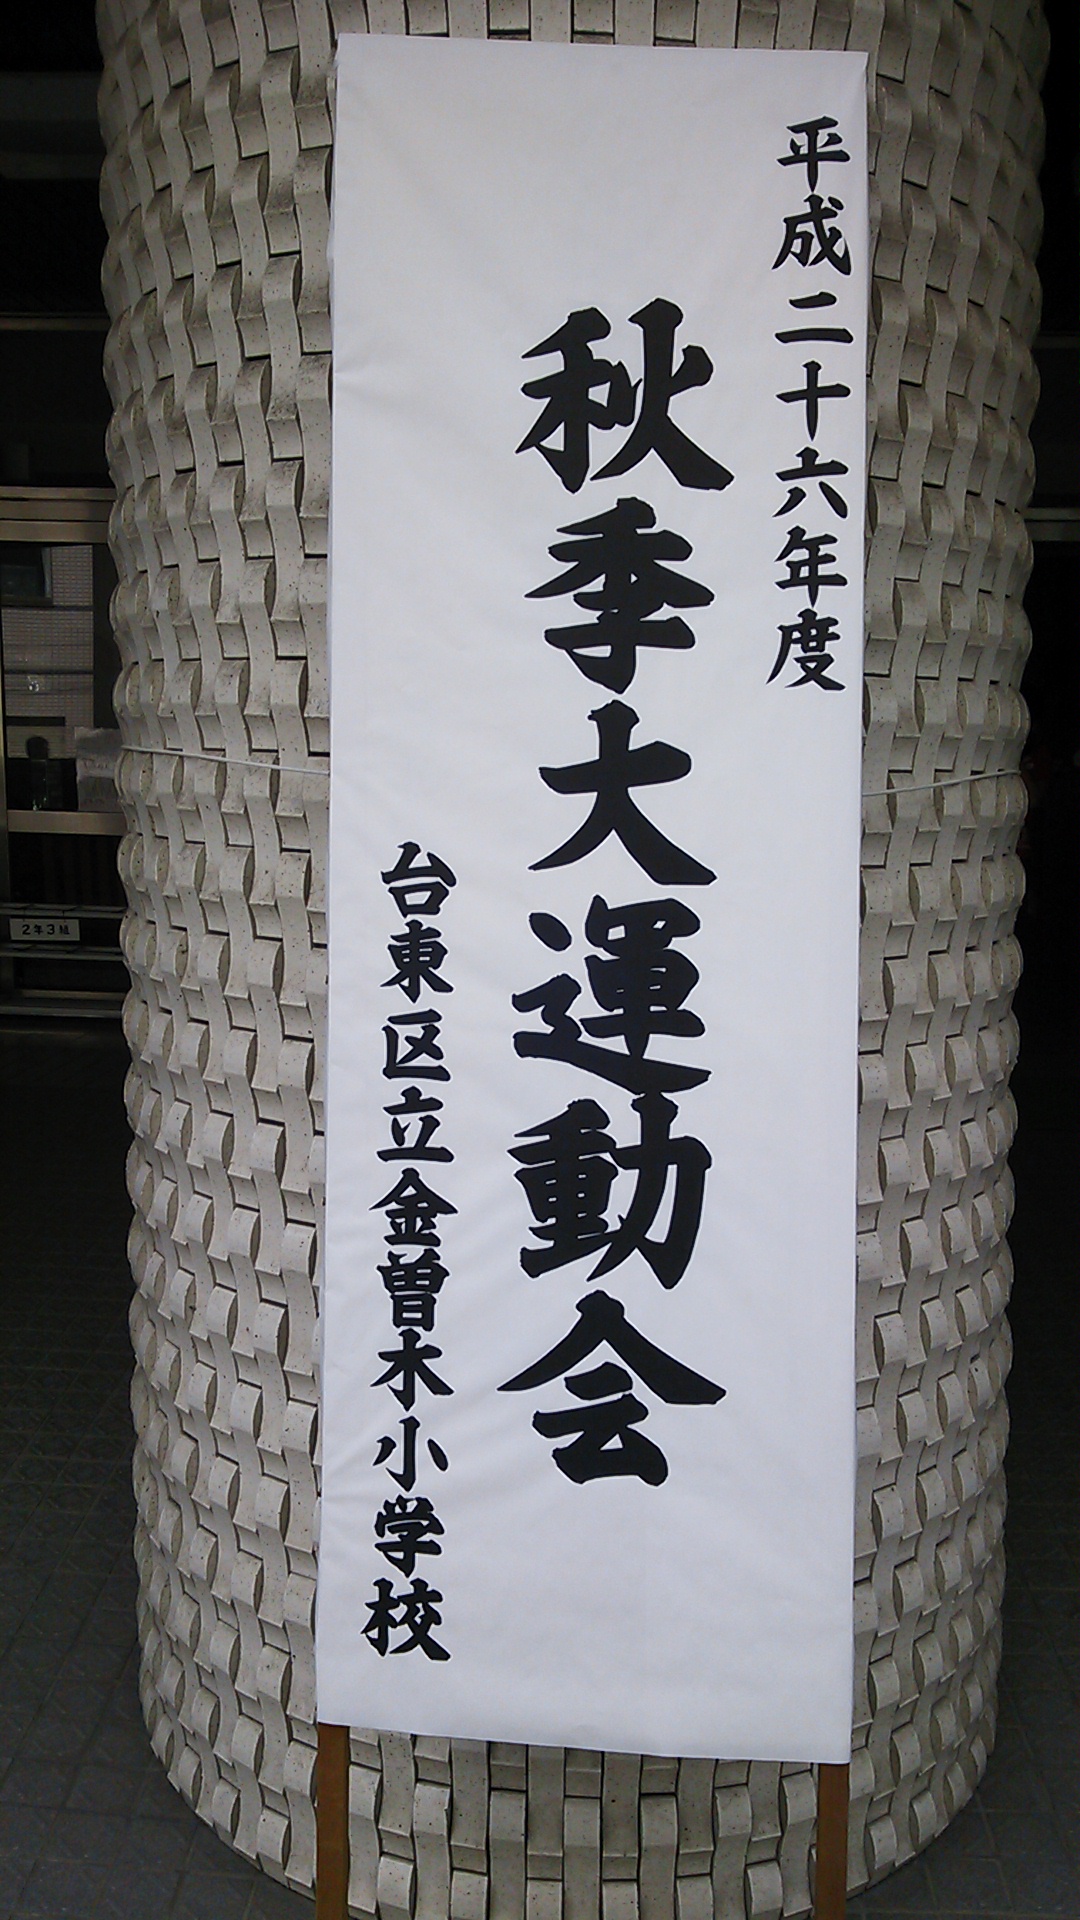 平成二十六年度
秋季大運動会
台東区立金曽木小学校
2年3組